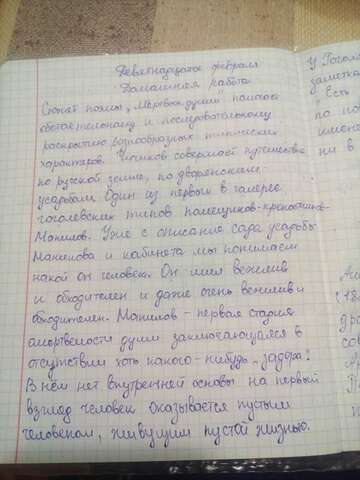 Девятнадцатое февраля
Домашняя работа
Сюжет поэмы „Мёртвые души"
и последовательному
раскрытию разнообразных типических
характеров. Чичиков совершает путешествие
по русской земле, по дворянским
усадьбам Один из первых в галерее
гоголевских типов помещиков-крепостников
Манилов. Уже с описание сада усадьбы
Манилова и кабинета мы понимаем
какой он человек. Он мил вежлив
и обходителен и даже очень вежлив и
обходителен. Манилов - первая стадия
омертвелости души заключающаяся в
отсутствии хоть какого-нибудь „задора!
В нём нет внутренней основы на первый
взгляд человек оказывается пустым
человеком, живущим пустой жизнью.
У Гоголя
заметка
Есть
по по
имени
ни в